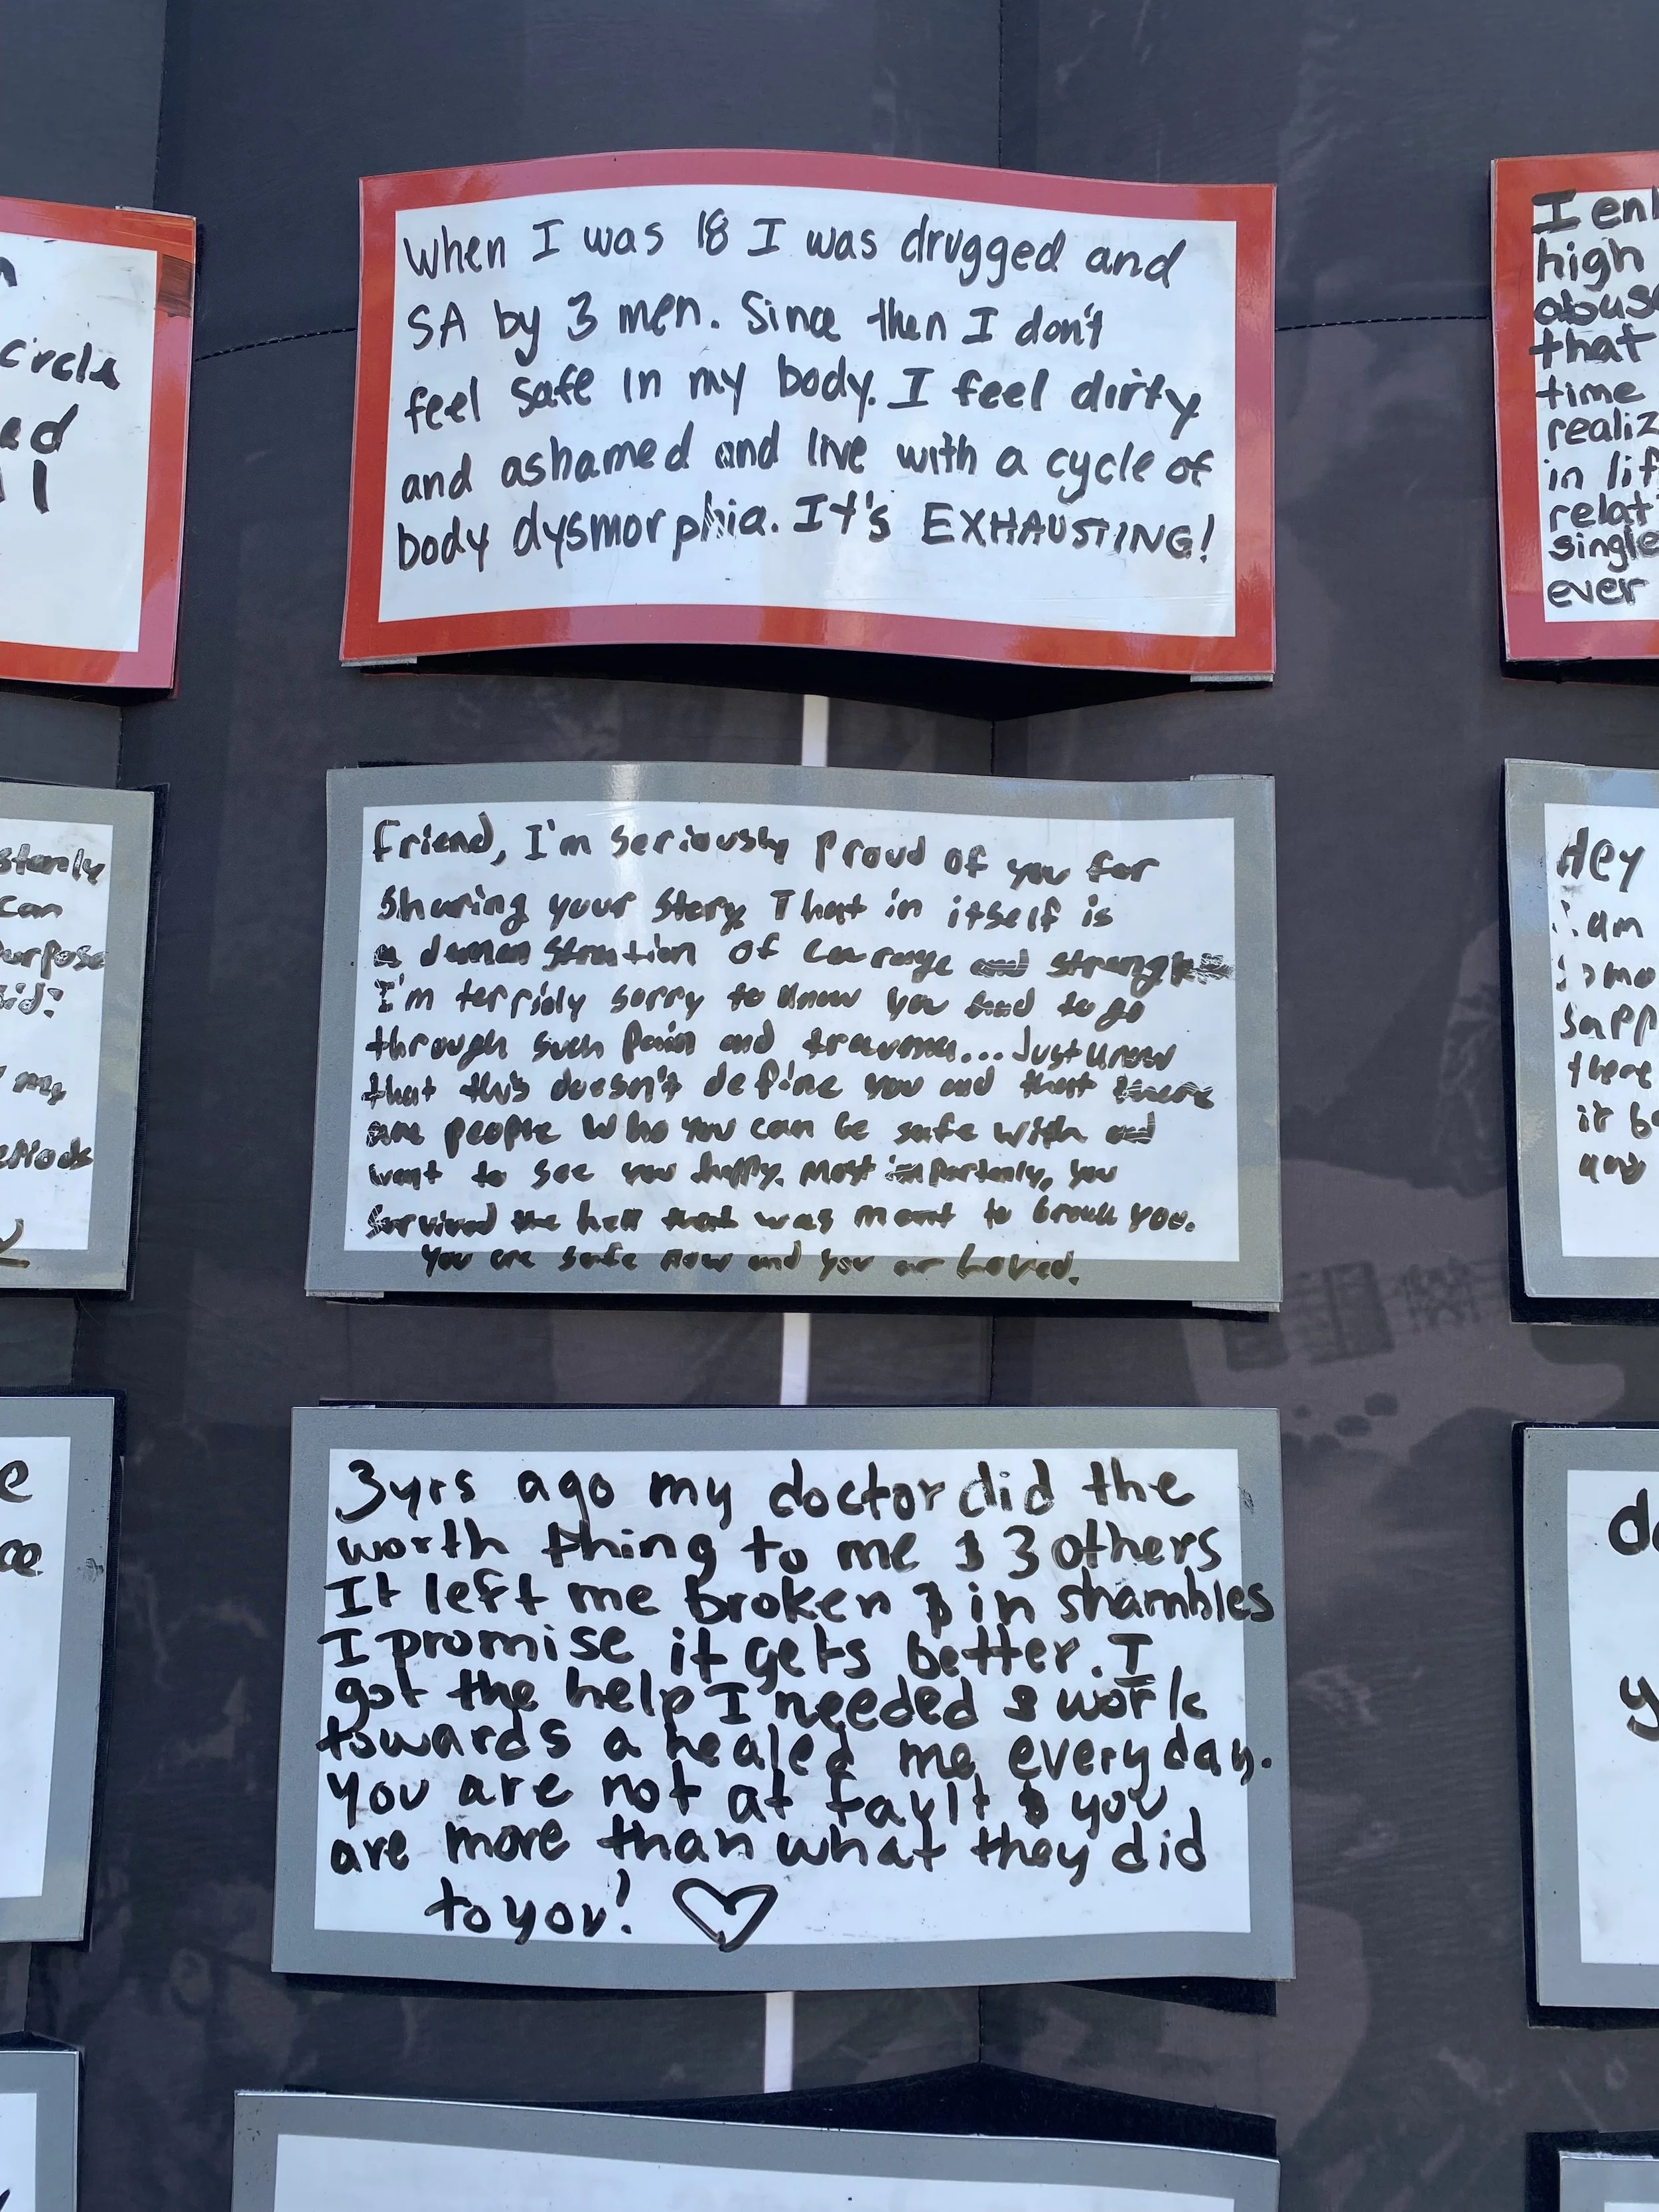 When I was 18 I was drugged and
SA by 3 men. Since then I don't
feel safe in my body. I feel dirty
and ashamed and live with a cycle of
body dysmorphia. It's EXHAUSTING!
Friend, I'm seriously proud of you for
sharing your story. That in itself is
a demonstration of courage and
I'm terribly sorry to know you had to go
through such pain and trauma... Just know
that this doesn't define you and that there
are people who you can be safe with and
want to see you happy. Most importantly, you
survived the hell that was meant to break you.
You are safe now and you are Loved.
3yrs ago my doctor did the
worth thing to me & 3 others
It left me broken & in shambles
I promise it gets better. I
got the help I needed & work
towards a healed me everyday.
You are not at fault & you
are more than what they did
to you!
circle
can
my
I
high
that
time
in
ever
Hey
am